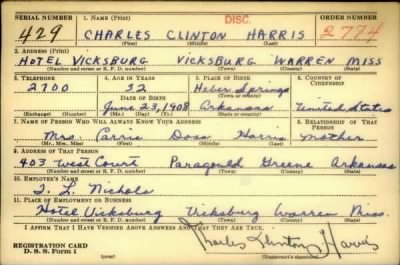 SERIAL NUMBER 1. NAME (Print) DISC. ORDER NUMBER
429 CHARLES CLINTON HARRIS 2774
(First) (Middle) (Last)
2. ADDRESS (Print)
HOTEL VICKSBURG VICKSBURG WARREN MISS
(Number and street or R. F. D. number) (Town) (County) (State)
3. TELEPHONE 4. AGE IN YEARS 5. PLACE OF BIRTH 6. COUNTRY OF CITIZENSHIP
2700 32 Heber Springs
(Town or county)
DATE OF BIRTH
June 23, 1908 Arkansas United States
(Exchange) (Number) (Mo.) (Day) (Yr.) (State or country)
7. NAME OF PERSON WHO WILL ALWAYS KNOW YOUR ADDRESS 8. RELATIONSHIP OF THAT PERSON
Mrs. Carrie Doss Harris Mother
(Mr., Mrs., Miss) (First) (Middle) (Last)
9. ADDRESS OF THAT PERSON
403 West Court Paragould Greene Arkansas
(Number and street or R. F. D. number) (Town) (County) (State)
10. EMPLOYER'S NAME
L. Nichols
11. PLACE OF EMPLOYMENT OR BUSINESS
Hotel Vicksburg Vicksburg Warren Miss.
(Number and street or R. F. D. number) (Town) (County) (State)
I AFFIRM THAT I HAVE VERIFIED ABOVE ANSWERS AND THAT THEY ARE TRUE.
REGISTRATION CARD
D. S. S. Form 1
Charles Clinton Harris
(Registrant's signature)